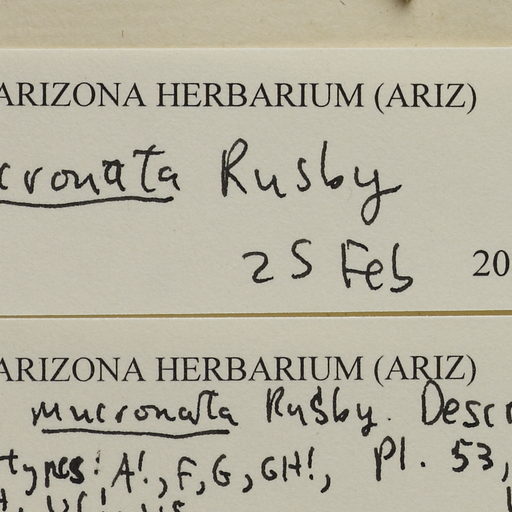 ARIZONA HERBARIUM (ARIZ)
cronata Rusby
25 Feb 20
ARIZONA HERBARIUM (ARIZ)
mucronata Rusby. Descr
types: A!, F, G, GH!, Pl. 53,